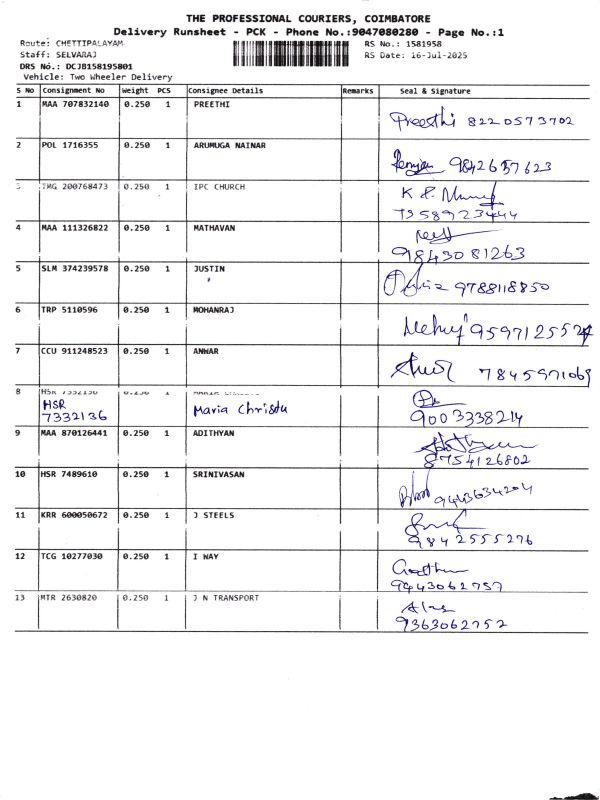 THE PROFESSIONAL COURIERS, COIMBATORE
Delivery Runsheet - PCK - Phone No.:9047080280 - Page No.:1
Route: CHETTIPALAYAM RS No.: 1581958
Staff: SELVARAJ RS Date: 16-Jul-2025
DRS No.: DCJB158195801
Vehicle: Two Wheeler Delivery
S No Consignment No Weight PCS Consignee Details Remarks Seal & Signature
1 MAA 707832140 0.250 1 PREETHI
Preethi 8220573702
2 POL 1716355 0.250 1 ARUMUGA NAINAR
9842637623
3 TMG 200768473 0.250 1 IPC CHURCH
7358923444
4 MAA 111326822 0.250 1 MATHAVAN
9843081263
5 SLM 374239578 0.250 1 JUSTIN
9788118850
6 TRP 5110596 0.250 1 MOHANRAJ
9597125527
7 CCU 911248523 0.250 1 ANWAR
7845971069
8 HSR 7332136 0.250 1
HSR Maria Christu
7332136 9003338214
9 MAA 870126441 0.250 1 ADITHYAN
8754126802
10 HSR 7489610 0.250 1 SRINIVASAN
9443634204
11 KRR 600050672 0.250 1 J STEELS
9842555276
12 TCG 10277030 0.250 1 I WAY
9443062757
13 MTR 2630820 0.250 1 J N TRANSPORT
9363062752